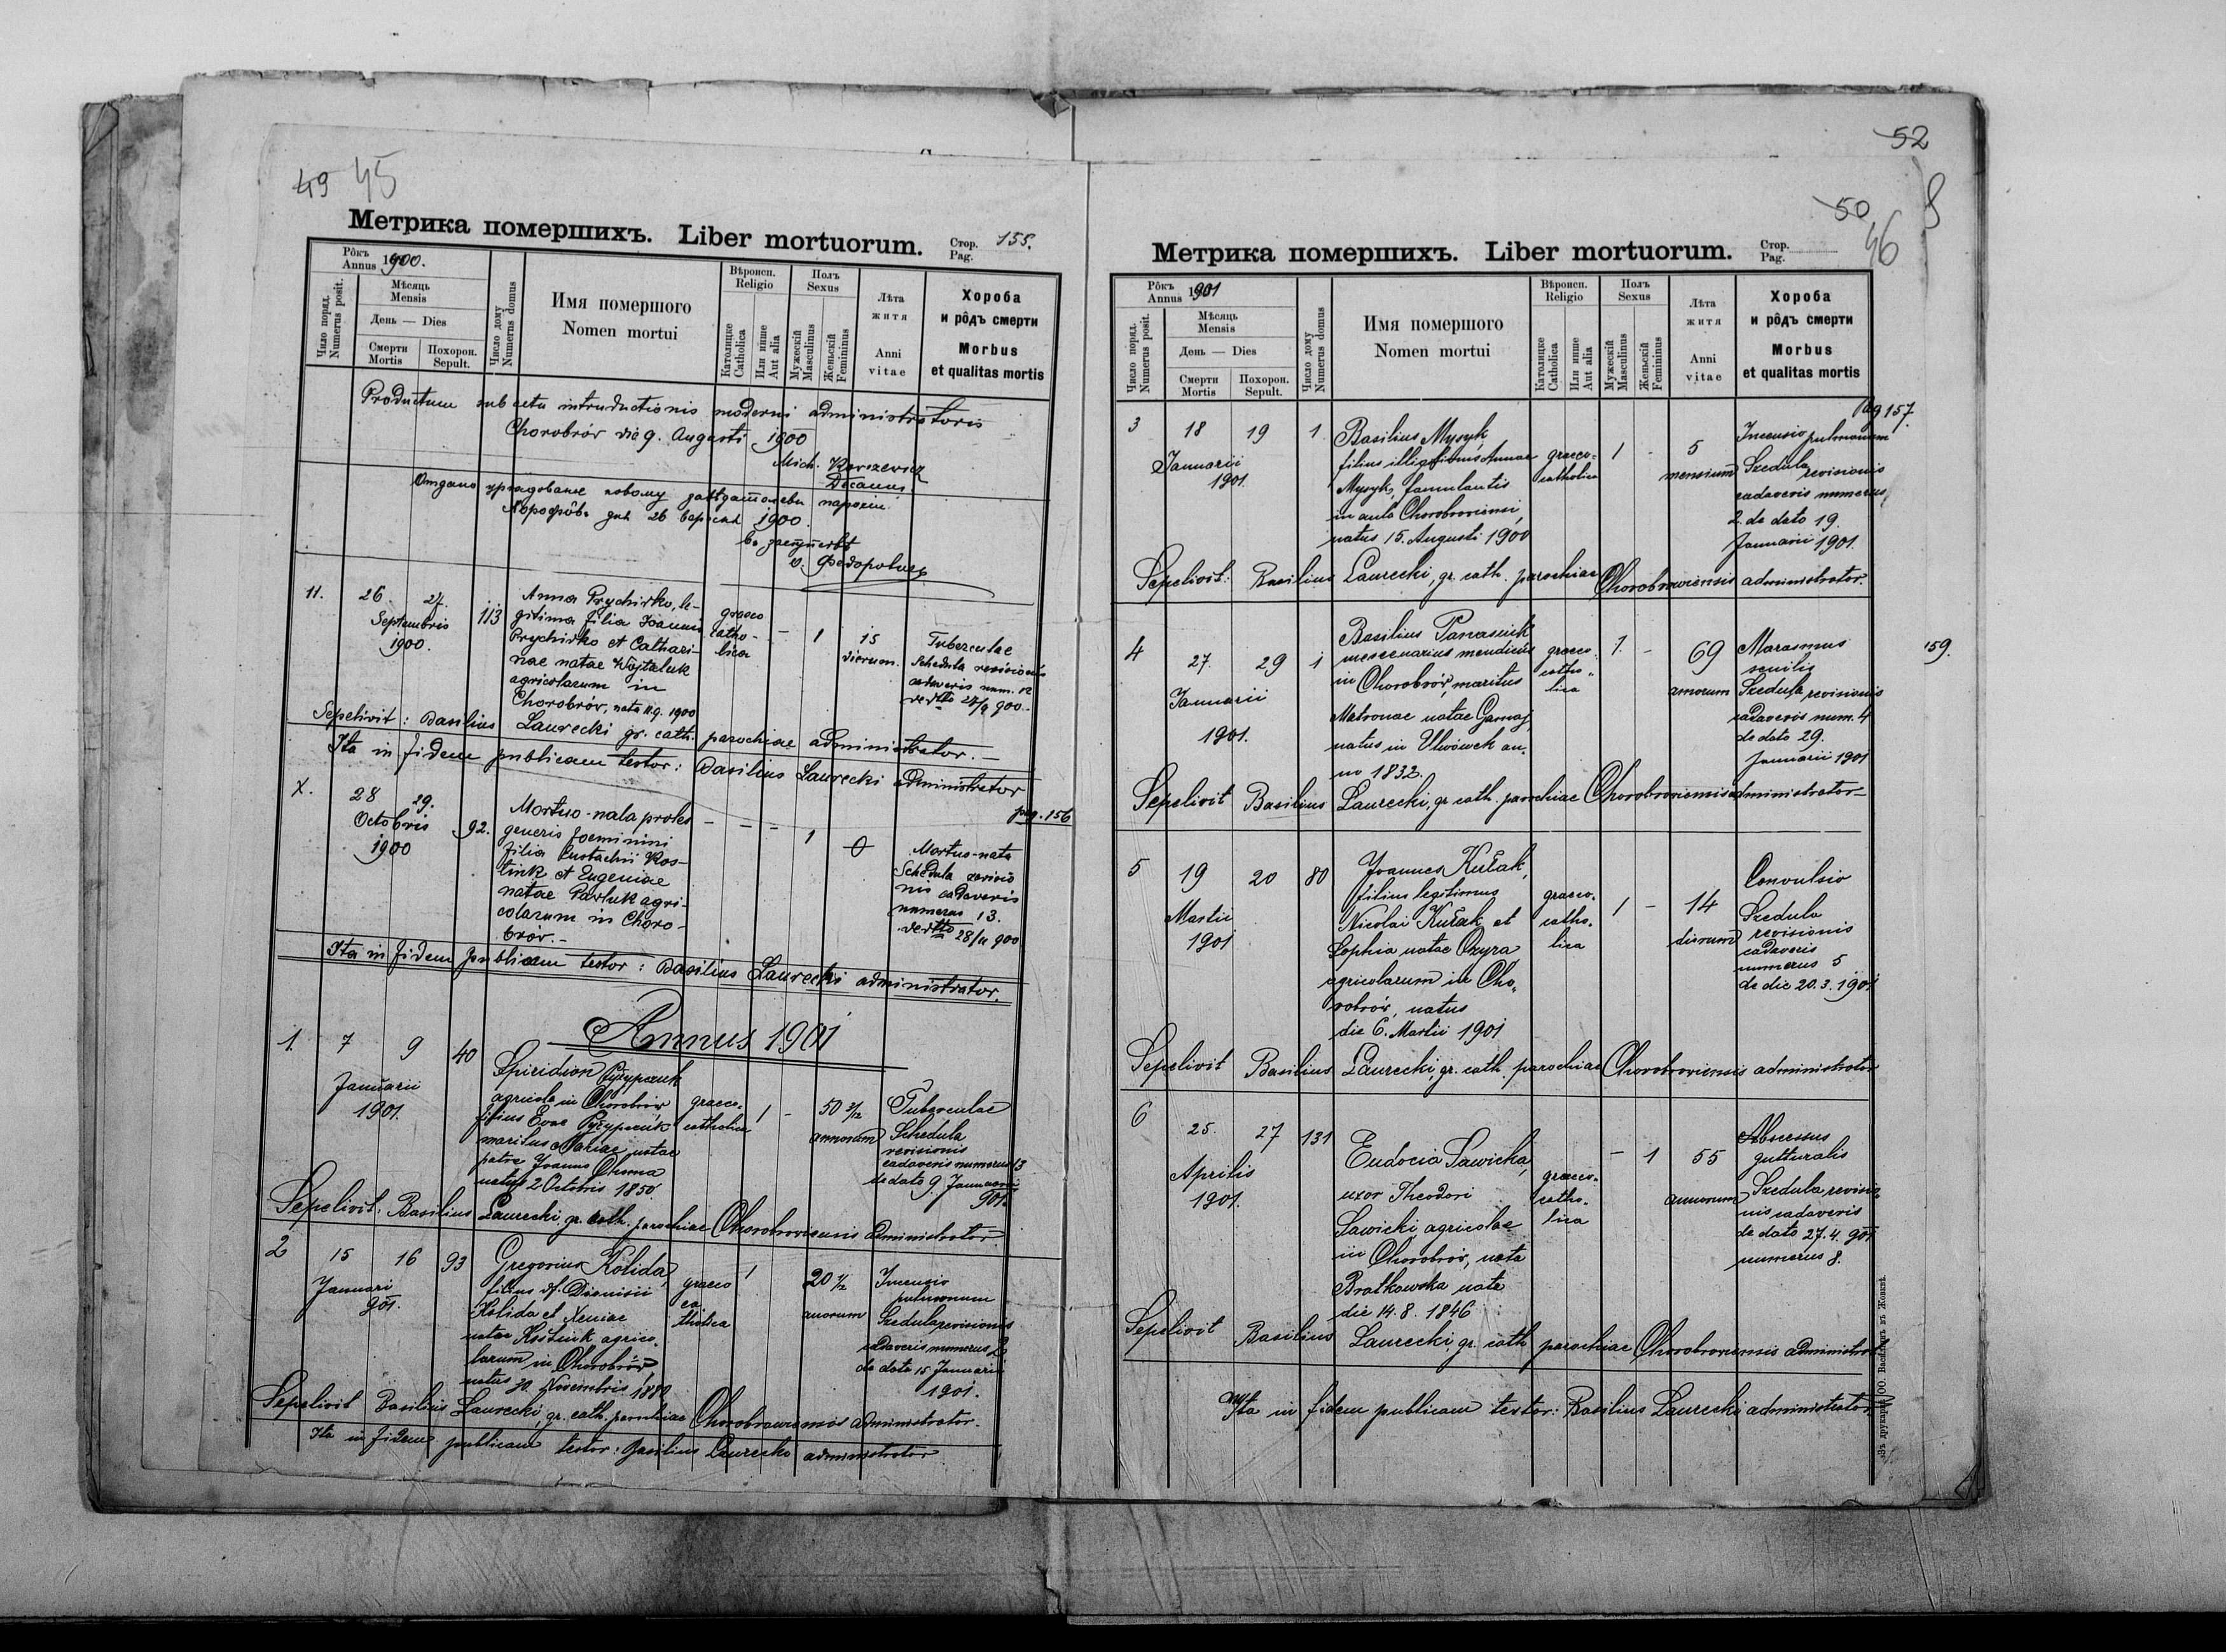 49 45
Метрика помершихъ. Liber mortuorum.
Стор. Pag. 155.
Рôкъ Annus 1900.
Мѣсяць Mensis
День — Dies
Смерти Mortis
Похорон. Sepult.
Число поряд. Numerus posit.
Число дому Numerus domus
Имя помершого
Nomen mortui
Вѣроисп. Religio
Католицке Catholica
Или нише Aut alia
Полъ Sexus
Мужескій Masculinus
Женьскій Femininus
Лѣта житя
Anni vitae
Хороба и рôдъ смерти
Morbus et qualitas mortis
Productum sub actu introductionis moderni administratoris
Chorobrów die 9. Augusti 1900
Mich.
Decanus
дня 26 1900.
11. 26. 27. 113 Anna Prychidko, le-
Septembris gitima filia Joannis graeco
1900. Prychidko et Cathari- catho- - 1 15 Tuberculae
nae natae Wojtaluk lica dierum. Schedula revisionis
agricolarum in cadaveris num. 12
Chorobrów, nata 11.9. 1900 900.
Sepelivit: Basilius Laurecki gr. cath. parochiae administrator.
Ita in fidem publicam testor: Basilius Laurecki administrator
pag. 156
X. 28 29. 92. Mortuo-nata proles - - - 1 0 Mortuo-nata
Octobris generis foeminini Schedula revisio
1900 filia Eustachii Kos- nis cadaveris
tiuk et Eugeniae numerus 13.
natae Pawluk agri- 900
colarum in Choro-
brów.-
Ita in fidem publicam testor: Basilius Laurecki administrator.
Annus 1901
1. 7 9 40 Spiridion
Januarii agricola in Chorobrów graeco- 1 - 50 3/12 Tuberculae
1901. filius Evae catholica annorum Schedula
maritus Mariae natae revisionis
patre Joanne cadaveris numerus
natus 2 Octobris 1850. de dato 9. Januarii
901.
Sepelivit: Basilius Laurecki, gr. cath. parochiae Chorobroviensis administrator.
2 15 16 93 Gregorius Kolida, 1 20 1/12 Incensio
Januari filius Dionisii graeco annorum pulmonum
901. Kolida et Xeniae ca- Szedula revisionis
natae Kostiuk agrico- tholica cadaveris numerus 2
larum in Chorobrów, de dato 15 Januarii
natus 30. Novembris 1880 1901.
Sepelivit Basilius Laurecki, gr. cath. parochiae Chorobroviensis administrator.
Ita in fidem publicam testor: Basilius Laurecki administrator
52
50
46
Метрика помершихъ. Liber mortuorum.
Стор. Pag.
Рôкъ Annus 1901
Мѣсяць Mensis
День — Dies
Смерти Mortis
Похорон. Sepult.
Число поряд. Numerus posit.
Число дому Numerus domus
Имя помершого
Nomen mortui
Вѣроисп. Religio
Католицке Catholica
Или нише Aut alia
Полъ Sexus
Мужескій Masculinus
Женьскій Femininus
Лѣта житя
Anni vitae
Хороба и рôдъ смерти
Morbus et qualitas mortis
Pag 157.
3 18 19 1 Basilius Mysyk, 1 - 5 Incensio pulmonum
Januarii filius illegitimus Annae graeco- mensium Szedula revisionis
1901. Mysyk, famulantis catholica cadaveris numerus
in aula Chorobroviensi, 2. de dato 19.
natus 15. Augusti 1900 Januarii 1901.
Sepelivit: Basilius Laurecki, gr. cath. parochiae Chorobroviensis administrator.
4 27. 29 1 Basilius Panasiuk 1. - 69 Marasmus
Januarii mercenarius mendicus graeco- annorum senilis
1901. in Chorobrów, maritus catho- Szedula revisionis
Matronae natae lica cadaveris num. 4
natus in Uhrówek an- de dato 29.
no 1832. Januarii 1901
159.
Sepelivit Basilius Laurecki, gr. cath. parochiae Chorobroviensis administrator-
5 19 20 80 Joannes Kułak, 1 - 14 Convulsio
Martii filius legitimus graeco- dierum Szedula
1901 Nicolai Kułak et catho- revisionis
Sophia natae Ozyra lica cadaveris
agricolarum in Cho- numerus 5
robrów, natus de die 20.3.1901
die 6. Martii 1901
Sepelivit Basilius Laurecki, gr. cath. parochiae Chorobroviensis administrator
6 25. 27 131 Eudocia Sawicka, - 1 55 Abscessus
Aprilis uxor Theodori graeco- annorum gutturalis
1901. Sawicki agricolae catho- Szedula revisio-
in Chorobrów, nata lica nis cadaveris
Bratkowska nata de dato 27.4.901
die 14.8. 1846 numerus 8.
Sepelivit Basilius Laurecki, gr. cath parochiae Chorobroviensis administrator
Ita in fidem publicam testor: Basilius Laurecki administrator
Зъ друкарнѣ ОО. Василіянъ въ Жовквѣ.